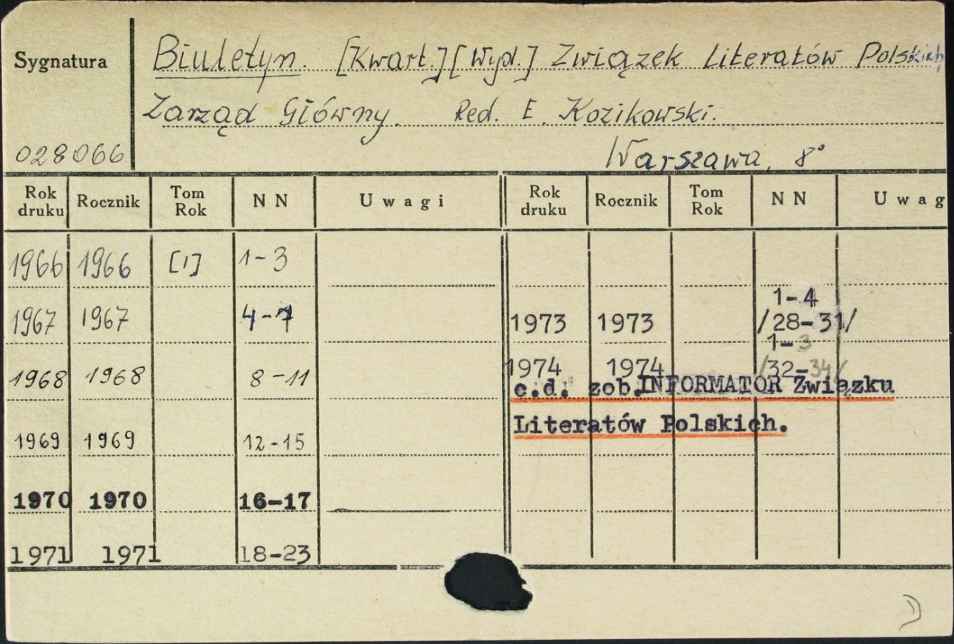 Sygnatura
Biuletyn. [Kwart.] [Wyd.] Związek Literatów Polskich
Zarząd Główny. Red. E. Kozikowski.
028066 Warszawa, 8°
Rok druku Rocznik Tom Rok NN Uwagi Rok druku Rocznik Tom Rok NN Uwag
1966 1966 [1] 1-3
1-4
1967 1967 4-7 1973 1973 /28-31/
1-3
1974 1974 /32-34/
1968 1968 8-11 c.d. zob. INFORMATOR Związku
Literatów Polskich.
1969 1969 12-15
1970 1970 16-17
1971 1971 18-23